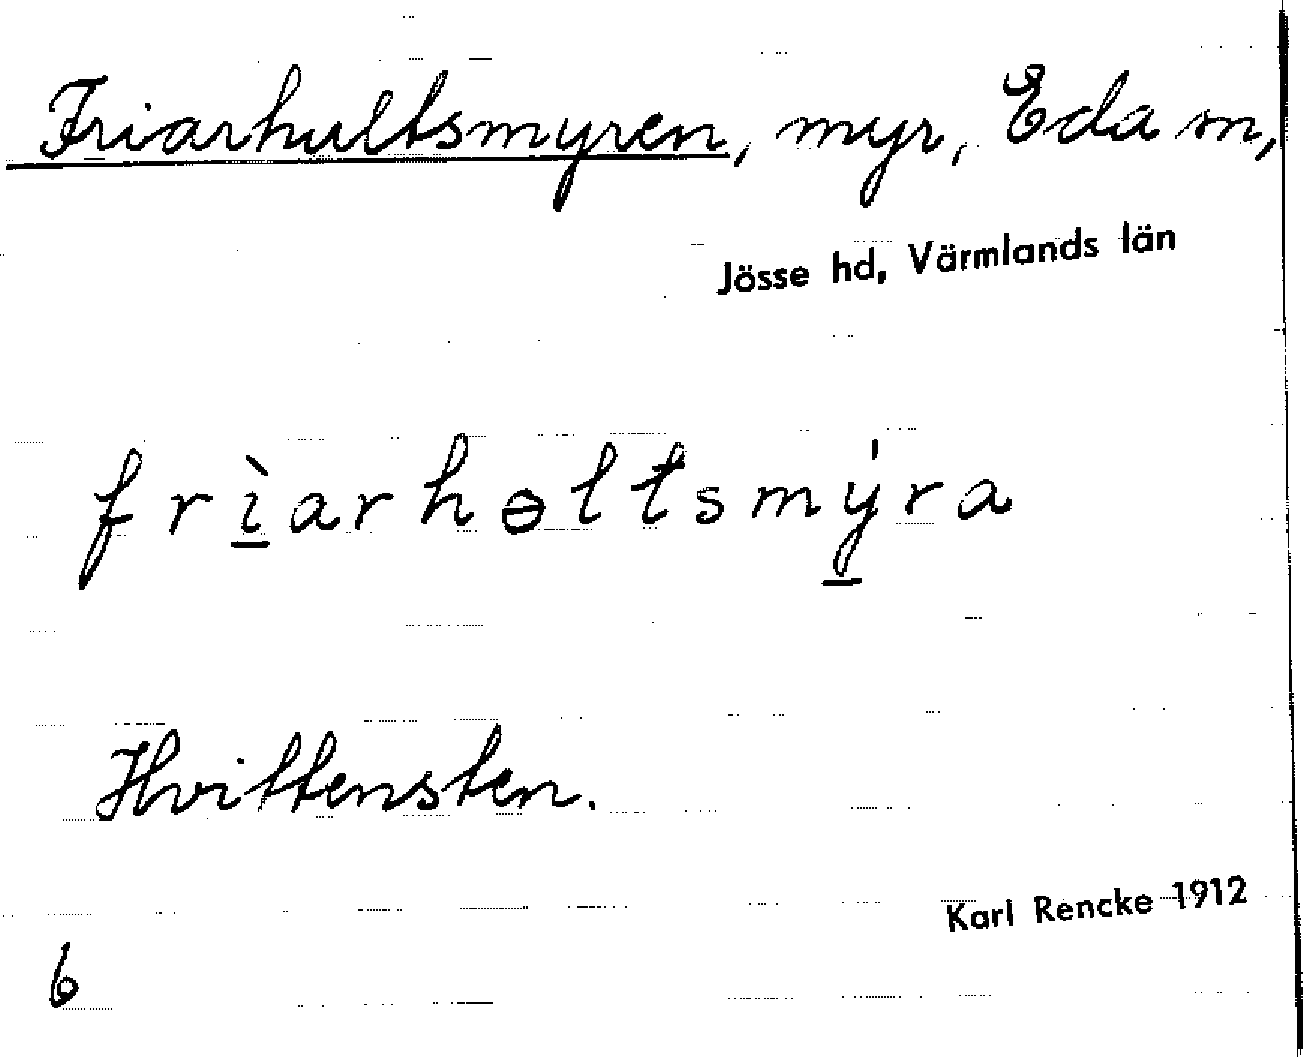 Friarhultsmyren, myr, Eda sn,
Jösse hd, Värmlands län
frìarhəltsmýra
Hvittensten.
Karl Rencke 1912
6